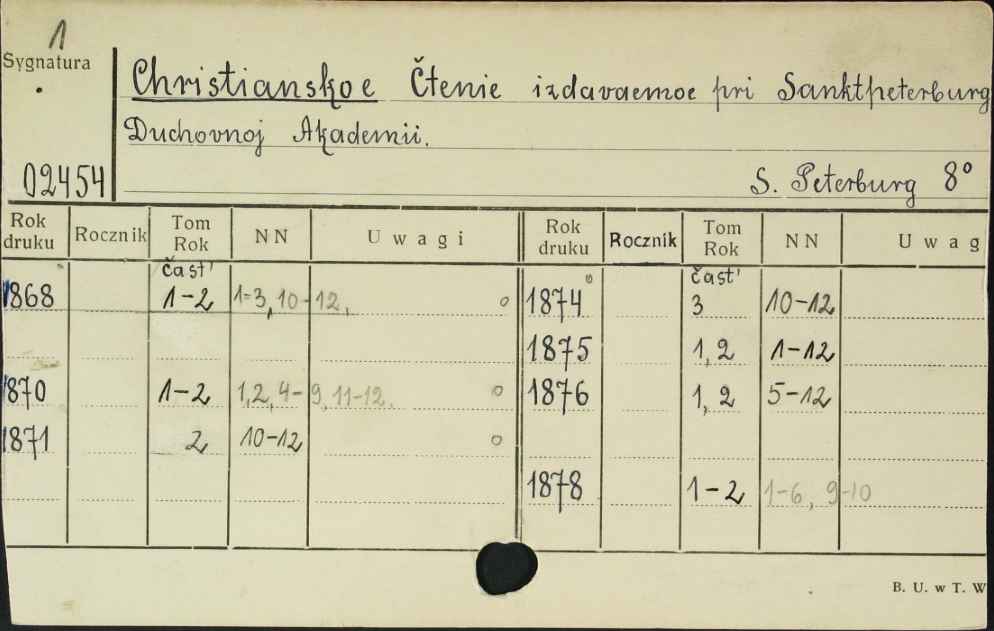 1
Sygnatura
Christianskoe Čtenie izdavaemoe pri Sanktpeterburg
Duchovnoj Akademii.
02454
S. Peterburg 8°
Rok druku Rocznik Tom Rok NN Uwagi Rok druku Rocznik Tom Rok NN Uwag
čast' čast'
1868 1-2 1-3, 10-12. o 1874 3 10-12
1875 1, 2 1-12
1870 1-2 1, 2, 4-9, 11-12. o 1876 1, 2 5-12
1871 2 10-12 o
1878 1-2 1-6, 9-10
B. U. w T. W